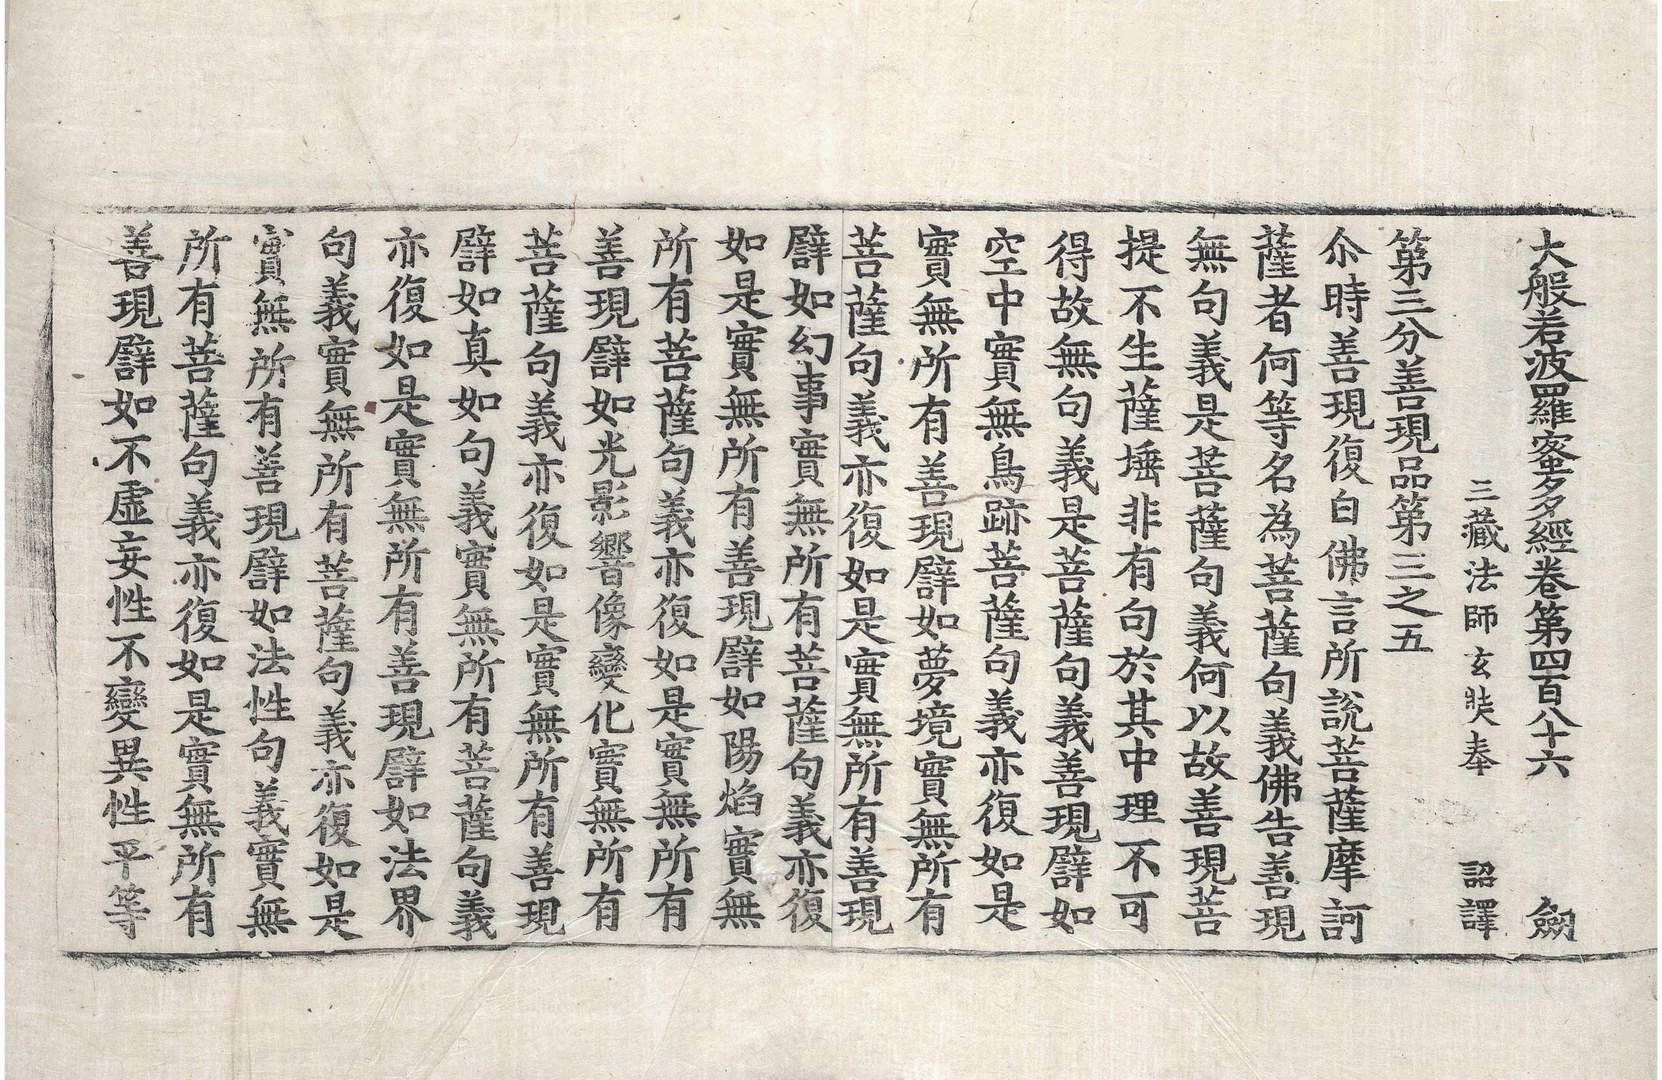 大般若波羅蜜多經卷第四百八十六　劒
三藏法師玄奘奉　詔譯
第三分善現品第三之五
尒時善現復白佛言所說菩薩摩訶
薩者何等名為菩薩句義佛告善現
無句義是菩薩句義何以故善現菩
提不生薩埵非有句於其中理不可
得故無句義是菩薩句義善現譬如
空中實無鳥跡菩薩句義亦復如是
實無所有善現譬如夢境實無所有
菩薩句義亦復如是實無所有善現
譬如幻事實無所有菩薩句義亦復
如是實無所有善現譬如陽焰實無
所有菩薩句義亦復如是實無所有
善現譬如光影響像變化實無所有
菩薩句義亦復如是實無所有善現
譬如真如句義實無所有菩薩句義
亦復如是實無所有善現譬如法界
句義實無所有菩薩句義亦復如是
實無所有善現譬如法性句義實無
所有菩薩句義亦復如是實無所有
善現譬如不虛妄性不變異性平等